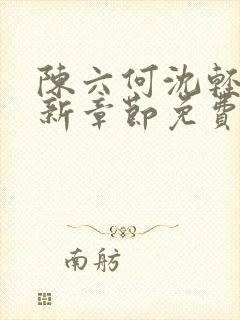 陳六何沈輕
新章節免費
南舫